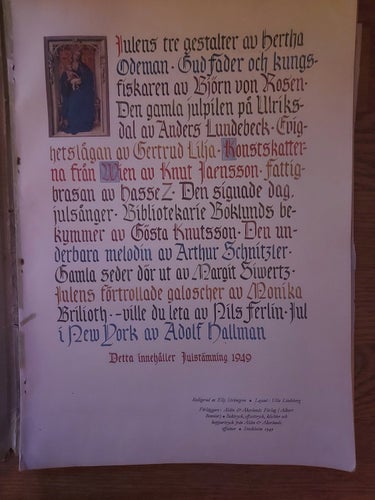 Julens tre gestalter av Hertha
Odeman · Gud Fader och kungs-
fiskaren av Björn von Rosen ·
Den gamla julpilen på Ulriks-
dal av Anders Lundebeck · Evig-
hetslågan av Gertrud Lilja · Konstskatter-
na från Wien av Knut Jaensson · Fattig-
brasan av Hasse Z · Den signade dag,
julsånger · Bibliotekarie Boklunds be-
kymmer av Gösta Knutsson · Den un-
derbara melodin av Arthur Schnitzler ·
Gamla seder dör ut av Margit Siwertz ·
Julens förtrollade galoscher av Monika
Brilioth · -- ville du leta av Nils Ferlin · Jul
i New York av Adolf Hallman
Detta innehåller Julstämning 1949
Redigerad av Elly • Layout: Ulla Lindberg
Förläggare: Åhlén & Åkerlunds Förlag (Albert
Bonnier) • Boktryck, offsettryck, klichéer och
koppartryck från Åhlén & Åkerlunds
offsäner • Stockholm 1949